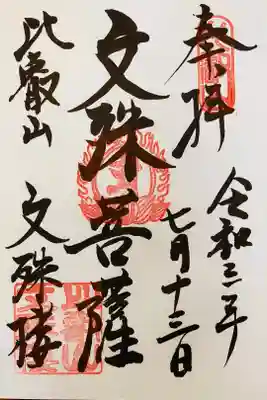 奉拝
令和三年
七月十三日
文殊菩薩
比叡山
文殊楼